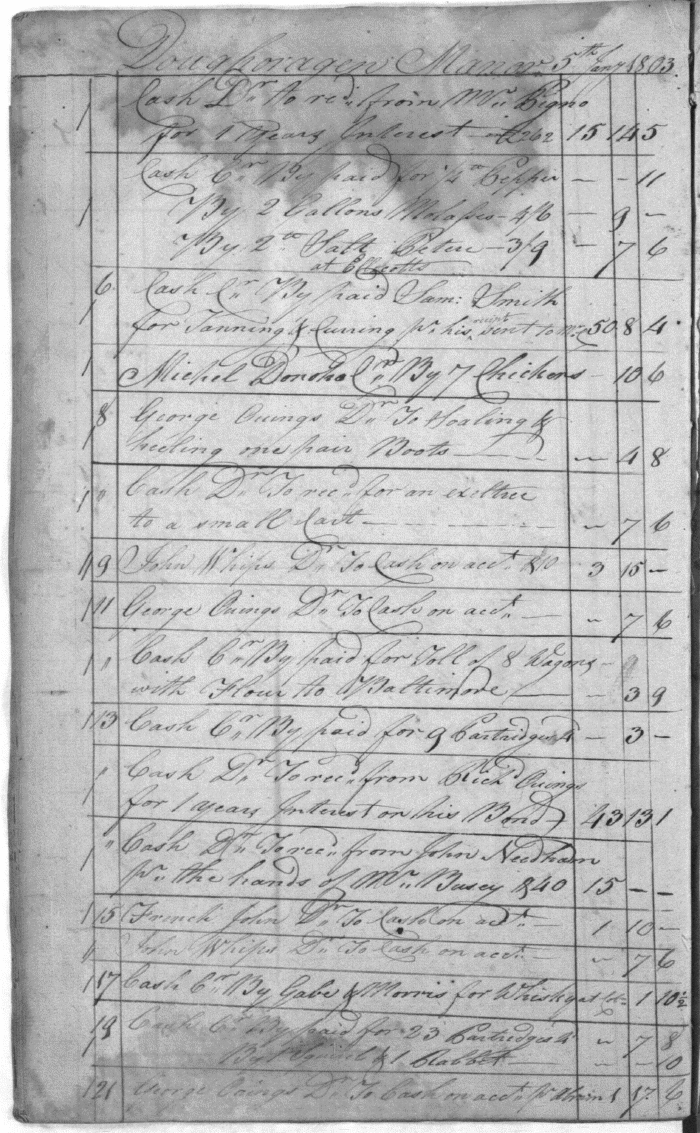 Doughoragen Manor 5th Jany 1803
Cash Dr. To recd. from Mr.
for 1 Years Interest 15 14 5
Cash Cr. By paid for 1/4 lb Pepper — - 11
By 2 Gallons Molasses - 4/6 — 9 -
By 2 lb Salt Peter - 3/9 — 7 6
at Ellicotts
6 Cash Cr. By paid Sam: Smith
for Tanning & Curring pr. his sent to me 50 8 4
Michel Donoho Cr. By 7 Chickens - 10 6
8 George Owings Dr. To Soaling &
heeling one pair Boots — " 4 8
" Cash Dr. To recd. for an exeltree
to a small Cart — " 7 6
9 John Whips Dr. To Cash on acct. $10 3 15 -
11 George Owings Dr. To Cash on acct. — " 7 6
" Cash Cr. By paid for Toll of 8 Wagons -
with Flour to Baltimore — - 3 9
13 Cash Cr. By paid for 9 Partridges - 3 -
" Cash Dr. To recd. from Richd. Owings
for 1 Years Interest on his Bond 43 13 1
" Cash Dr. To recd. from John Needham
pr. the hands of Mr. Busey $40 15 - -
15 French John Dr. To Cash on acct. — 1 10 -
" John Whips Dr. To Cash on acct. — " 7 6
17 Cash Cr. By Gabe & Morris for Whisky 1 10 1/2
19 Cash Cr. By paid for 23 Partridges " 7 8
By 1 Squirel & 1 Rabbet " - 10
21 George Owings Dr. To Cash on acct. pr. 1 17 6